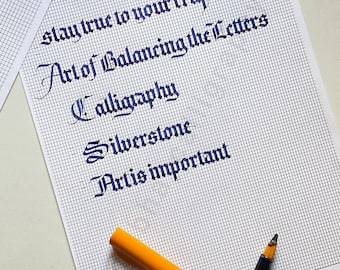 stay true to your
Art of Balancing the Letters
Calligraphy
Silverstone
Art is important